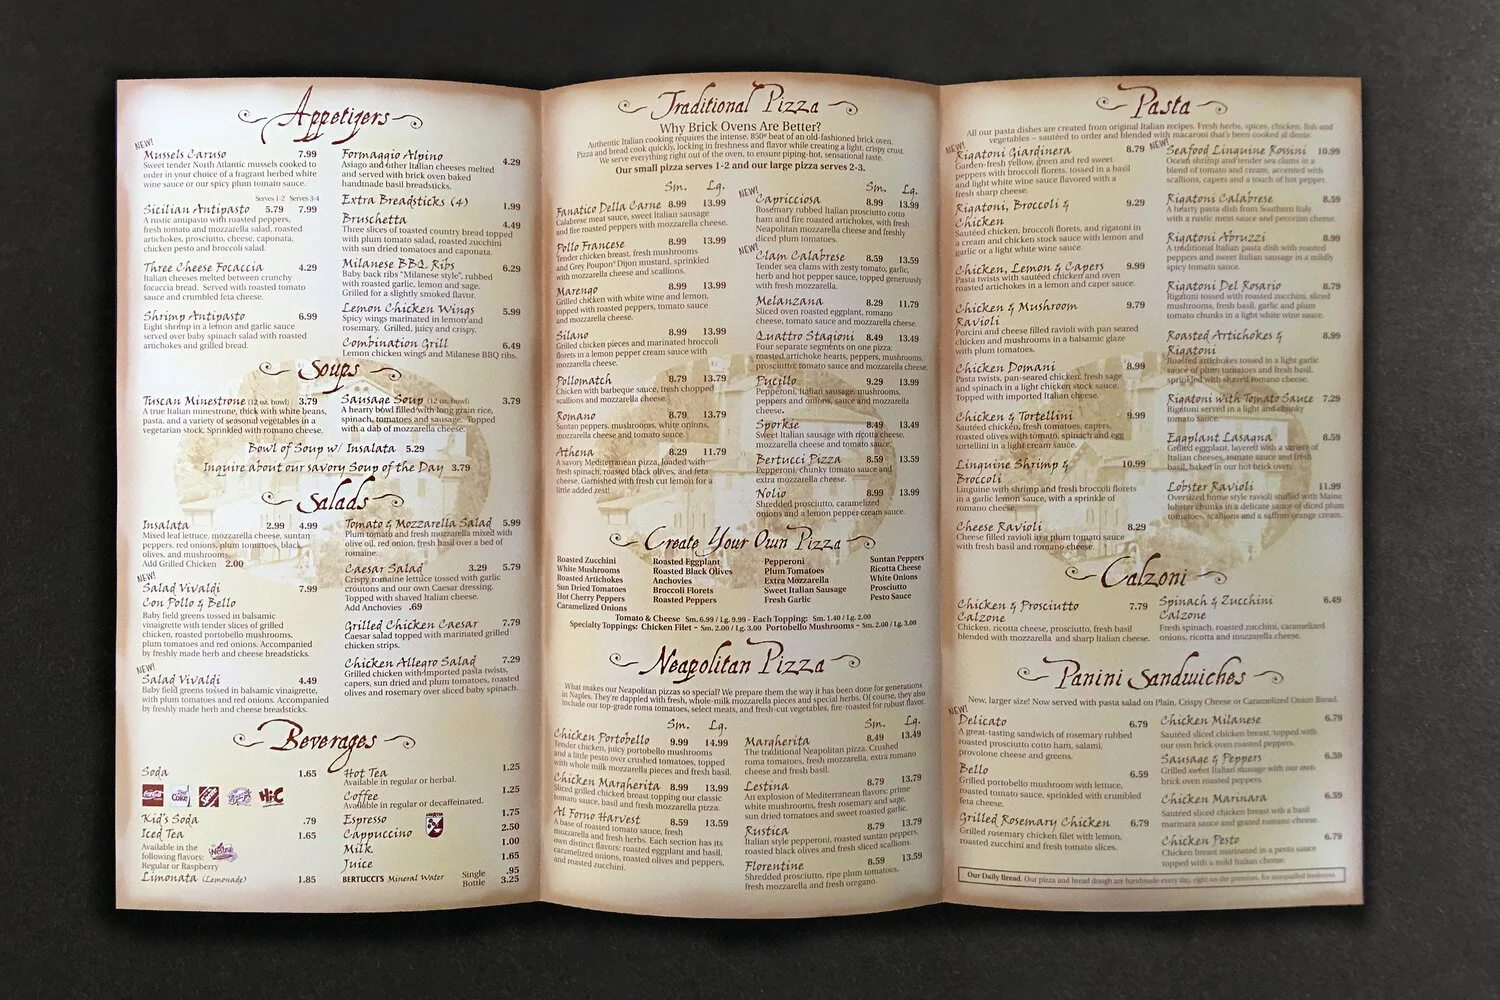 Appetizers
NEW!
Mussels Caruso 7.99
Sweet tender North Atlantic mussels cooked to
order in your choice of a fragrant herbed white
wine sauce or our spicy plum tomato sauce.
Serves 1-2 Serves 3-4
Sicilian Antipasto 5.79 7.99
A rustic antipasto with roasted peppers,
fresh tomato and mozzarella salad, roasted
artichokes, prosciutto, cheese, caponata,
chicken pesto and broccoli salad.
Three Cheese Focaccia 4.29
Italian cheeses melted between crunchy
focaccia bread. Served with roasted tomato
sauce and crumbled feta cheese.
Shrimp Antipasto 6.99
Eight shrimp in a lemon and garlic sauce
served over baby spinach salad with roasted
artichokes and grilled bread.
Formaggio Alpino 4.29
Asiago and other Italian cheeses melted
and served with brick oven baked
handmade basil breadsticks.
Extra Breadsticks (4) 1.99
Bruschetta 4.49
Three slices of toasted country bread topped
with plum tomato salad, roasted zucchini
with sun dried tomatoes and caponata.
Milanese BBQ Ribs 6.29
Baby back ribs "Milanese style", rubbed
with roasted garlic, lemon and sage.
Grilled for a slightly smoked flavor.
Lemon Chicken Wings 5.99
Spicy wings marinated in lemon and
rosemary. Grilled, juicy and crispy.
Combination Grill 6.49
Lemon chicken wings and Milanese BBQ ribs.
Soups
Tuscan Minestrone (12 oz. bowl) 3.79
A true Italian minestrone, thick with white beans,
pasta, and a variety of seasonal vegetables in a
vegetarian stock. Sprinkled with romano cheese.
Sausage Soup (12 oz. bowl) 3.79
A hearty bowl filled with long grain rice,
spinach, tomatoes and sausage. Topped
with a dab of mozzarella cheese.
Bowl of Soup w/ Insalata 5.29
Inquire about our savory Soup of the Day 3.79
Salads
Insalata 2.99 4.99
Mixed leaf lettuce, mozzarella cheese, suntan
peppers, red onions, plum tomatoes, black
olives, and mushrooms.
Add Grilled Chicken 2.00
NEW!
Salad Vivaldi 7.99
Con Pollo & Bello
Baby field greens tossed in balsamic
vinaigrette with tender slices of grilled
chicken, roasted portobello mushrooms,
plum tomatoes and red onions. Accompanied
by freshly made herb and cheese breadsticks.
NEW!
Salad Vivaldi 4.49
Baby field greens tossed in balsamic vinaigrette,
with plum tomatoes and red onions. Accompanied
by freshly made herb and cheese breadsticks.
Tomato & Mozzarella Salad 5.99
Plum tomato and fresh mozzarella mixed with
olive oil, red onion, fresh basil over a bed of
romaine.
Caesar Salad 3.29 5.79
Crispy romaine lettuce tossed with garlic
croutons and our own Caesar dressing.
Topped with shaved Italian cheese.
Add Anchovies .69
Grilled Chicken Caesar 7.79
Caesar salad topped with marinated grilled
chicken strips.
Chicken Allegro Salad 7.29
Grilled chicken with imported pasta twists,
capers, sun dried and plum tomatoes, roasted
olives and rosemary over sliced baby spinach.
Beverages
Soda 1.65
Coca-Cola
Coke
Hi-C
Kid's Soda .79
Iced Tea 1.65
Available in the
following flavors:
Regular or Raspberry
Nestea
Limonata (Lemonade) 1.85
Hot Tea 1.25
Available in regular or herbal.
Coffee 1.25
Available in regular or decaffeinated.
Espresso 1.75
Cappuccino 2.50
Milk 1.00
Juice 1.65
BERTUCCI'S Mineral Water Single .95
Bottle 3.25
Traditional Pizza
Why Brick Ovens Are Better?
Authentic Italian cooking requires the intense, 850° heat of an old-fashioned brick oven.
Pizza and bread cook quickly, locking in freshness and flavor while creating a light, crispy crust.
We serve everything right out of the oven, to ensure piping-hot, sensational taste.
Our small pizza serves 1-2 and our large pizza serves 2-3.
Sm. Lg.
Fanatico Della Carne 8.99 13.99
Calabrese meat sauce, sweet Italian sausage
and fire roasted peppers with mozzarella cheese.
Pollo Francese 8.99 13.99
Tender chicken breast, fresh mushrooms
and Grey Poupon® Dijon mustard, sprinkled
with mozzarella cheese and scallions.
Marengo 8.99 13.99
Grilled chicken with white wine and lemon,
topped with roasted peppers, tomato sauce
and mozzarella cheese.
Silano 8.99 13.99
Grilled chicken pieces and marinated broccoli
florets in a lemon pepper cream sauce with
mozzarella cheese.
Pollomatch 8.79 13.79
Chicken with barbeque sauce, fresh chopped
scallions and mozzarella cheese.
Romano 8.79 13.79
Suntan peppers, mushrooms, white onions,
mozzarella cheese and tomato sauce.
Athena 8.29 11.79
A savory Mediterranean pizza, loaded with
fresh spinach, roasted black olives, and feta
cheese. Garnished with fresh cut lemon for a
little added zest!
Sm. Lg.
NEW!
Capricciosa 8.99 13.99
Rosemary rubbed Italian prosciutto cotto
ham and fire roasted artichokes, with fresh
Neapolitan mozzarella cheese and freshly
diced plum tomatoes.
NEW!
Clam Calabrese 8.59 13.59
Tender sea clams with zesty tomato, garlic,
herb and hot pepper sauce, topped generously
with fresh mozzarella.
Melanzana 8.29 11.79
Sliced oven roasted eggplant, romano
cheese, tomato sauce and mozzarella cheese.
Quattro Stagioni 8.49 13.49
Four separate segments on one pizza:
roasted artichoke hearts, peppers, mushrooms,
prosciutto, tomato sauce and mozzarella cheese.
Puccillo 9.29 13.99
Pepperoni, Italian sausage, mushrooms,
peppers and onions, sauce and mozzarella
cheese.
Sporkie 8.49 13.49
Sweet Italian sausage with ricotta cheese,
mozzarella cheese, and tomato sauce.
Bertucci Pizza 8.59 13.59
Pepperoni, chunky tomato sauce and
extra mozzarella cheese.
Nolio 8.99 13.99
Shredded prosciutto, caramelized
onions and a lemon pepper cream sauce.
Create Your Own Pizza
Roasted Zucchini
White Mushrooms
Roasted Artichokes
Sun Dried Tomatoes
Hot Cherry Peppers
Caramelized Onions
Roasted Eggplant
Roasted Black Olives
Anchovies
Broccoli Florets
Roasted Peppers
Pepperoni
Plum Tomatoes
Extra Mozzarella
Sweet Italian Sausage
Fresh Garlic
Suntan Peppers
Ricotta Cheese
White Onions
Prosciutto
Pesto Sauce
Tomato & Cheese Sm. 6.99 / Lg. 9.99 - Each Topping: Sm. 1.40 / Lg. 2.00
Specialty Toppings: Chicken Filet - Sm. 2.00 / Lg. 3.00 Portobello Mushrooms - Sm. 2.00 / Lg. 3.00
Neapolitan Pizza
What makes our Neapolitan pizzas so special? We prepare them the way it has been done for generations
in Naples. They're dappled with fresh, whole-milk mozzarella pieces and special herbs. Of course, they also
include our top-grade roma tomatoes, select meats, and fresh-cut vegetables, fire-roasted for robust flavor.
Sm. Lg.
Chicken Portobello 9.99 14.99
Tender chicken, juicy portobello mushrooms
and a little pesto over crushed tomatoes, topped
with whole milk mozzarella pieces and fresh basil.
Chicken Margherita 8.99 13.99
Sliced grilled chicken breast topping our classic
tomato sauce, basil and fresh mozzarella pizza.
Al Forno Harvest 8.59 13.59
A base of roasted tomato sauce, fresh
mozzarella and fresh herbs. Each section has its
own distinct flavors: roasted eggplant and basil,
caramelized onions, roasted olives and peppers,
and roasted zucchini.
Sm. Lg.
Margherita 8.49 13.49
The traditional Neapolitan pizza. Crushed
roma tomatoes, fresh mozzarella, extra romano
cheese and fresh basil.
Lestina 8.79 13.79
An explosion of Mediterranean flavors: prime
white mushrooms, fresh rosemary and sage,
sun dried tomatoes and sweet roasted garlic.
Rustica 8.79 13.79
Italian style pepperoni, roasted suntan peppers,
roasted black olives and fresh sliced scallions.
Florentine 8.59 13.59
Shredded prosciutto, ripe plum tomatoes,
fresh mozzarella and fresh oregano.
Pasta
All our pasta dishes are created from original Italian recipes. Fresh herbs, spices, chicken, fish and
vegetables - sautéed to order and blended with macaroni that's been cooked al dente.
NEW!
Rigatoni Giardinera 8.79
Garden-fresh yellow, green and red sweet
peppers with broccoli florets, tossed in a basil
and light white wine sauce flavored with a
fresh sharp cheese.
Rigatoni, Broccoli & 9.29
Chicken
Sautéed chicken, broccoli florets, and rigatoni in
a cream and chicken stock sauce with lemon and
garlic or a light white wine sauce.
Chicken, Lemon & Capers 9.99
Pasta twists with sautéed chicken and oven
roasted artichokes in a lemon and caper sauce.
Chicken & Mushroom 9.79
Ravioli
Porcini and cheese filled ravioli with pan seared
chicken and mushrooms in a balsamic glaze
with plum tomatoes.
Chicken Domani 8.99
Pasta twists, pan-seared chicken, fresh sage
and spinach in a light chicken stock sauce.
Topped with imported Italian cheese.
Chicken & Tortellini 9.99
Sautéed chicken, fresh tomatoes, capers,
roasted olives with tomato, spinach and egg
tortellini in a light cream sauce.
Linguine Shrimp & 10.99
Broccoli
Linguine with shrimp and fresh broccoli florets
in a garlic lemon sauce, with a sprinkle of
romano cheese.
Cheese Ravioli 8.29
Cheese filled ravioli in a plum tomato sauce
with fresh basil and romano cheese.
NEW!
Seafood Linguine Rossini 10.99
Ocean shrimp and tender sea clams in a
blend of tomato and cream, accented with
scallions, capers and a touch of hot pepper.
Rigatoni Calabrese 8.59
A hearty pasta dish from Southern Italy
with a rustic meat sauce and pecorino cheese.
Rigatoni Abruzzi 8.99
A traditional Italian pasta dish with roasted
peppers and sweet Italian sausage in a mildly
spicy tomato sauce.
Rigatoni Del Rosario 8.79
Rigatoni tossed with roasted zucchini, sliced
mushrooms, fresh basil, garlic and plum
tomato chunks in a light white wine sauce.
Roasted Artichokes & 8.99
Rigatoni
Roasted artichokes tossed in a light garlic
sauce of plum tomatoes and fresh basil,
sprinkled with shaved romano cheese.
Rigatoni with Tomato Sauce 7.29
Rigatoni served in a light and chunky
tomato sauce.
Eggplant Lasagna 8.59
Grilled eggplant, layered with a variety of
Italian cheeses, tomato sauce and fresh
basil, baked in our hot brick oven.
Lobster Ravioli 11.99
Oversized home style ravioli stuffed with Maine
lobster chunks in a delicate sauce of diced plum
tomatoes, scallions and a saffron orange cream.
Calzoni
Chicken & Prosciutto 7.79
Calzone
Chicken, ricotta cheese, prosciutto, fresh basil
blended with mozzarella and sharp Italian cheese.
Spinach & Zucchini 6.49
Calzone
Fresh spinach, roasted zucchini, caramelized
onions, ricotta and mozzarella cheese.
Panini Sandwiches
New, larger size! Now served with pasta salad on Plain, Crispy Cheese or Caramelized Onion Bread.
NEW!
Delicato 6.79
A great-tasting sandwich of rosemary rubbed
roasted prosciutto cotto ham, salami,
provolone cheese and greens.
Bello 6.59
Grilled portobello mushroom with lettuce,
roasted tomato sauce, sprinkled with crumbled
feta cheese.
Grilled Rosemary Chicken 6.79
Grilled rosemary chicken filet with lemon,
roasted zucchini and fresh tomato slices.
Chicken Milanese 6.79
Sautéed sliced chicken breast, topped with
our own brick oven roasted peppers.
Sausage & Peppers 6.59
Grilled sweet Italian sausage with our own
brick oven roasted peppers.
Chicken Marinara 6.59
Sautéed sliced chicken breast with a basil
marinara sauce and grated romano cheese.
Chicken Pesto 6.79
Chicken breast marinated in a pesto sauce
topped with a mild Italian cheese.
Our Daily Bread. Our pizza and bread dough are handmade every day, right on the premises, for unequalled freshness.